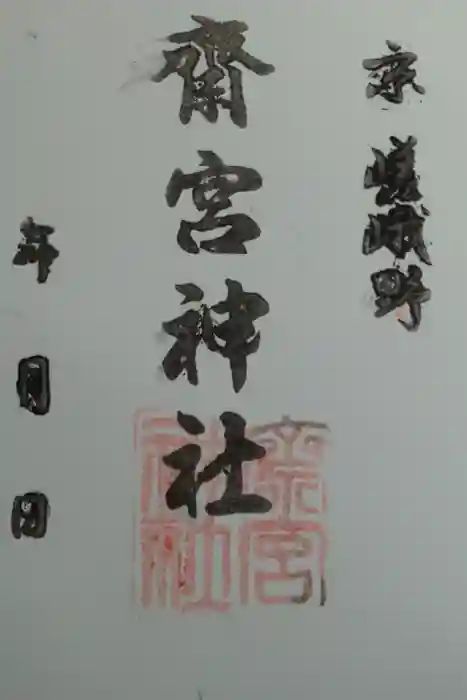 京 嵯峨野
齋宮神社
年 月 日
齋宮神社